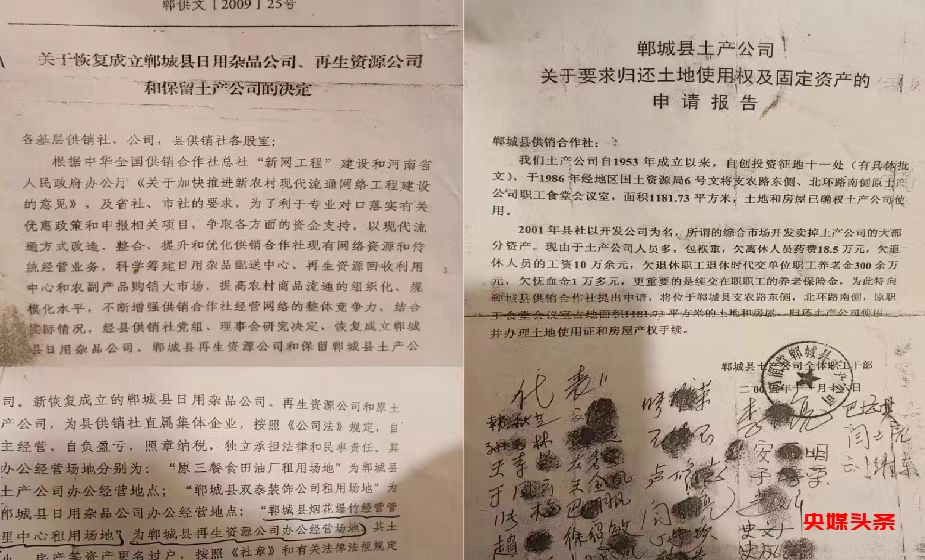 郸供文［2009］25号
关于恢复成立郸城县日用杂品公司、再生资源公司
和保留土产公司的决定
各基层供销社、公司，县供销社各股室：
根据中华全国供销合作社总社“新网工程”建设和河南省
人民政府办公厅《关于加快推进新农村现代流通网络工程建设
的意见》，及省社、市社的要求，为了利于专业对口落实有关
优惠政策和申报相关项目，争取各方面的资金支持，以现代流
通方式改造、整合、提升和优化供销合作社现有网络资源和传
统经营业务，科学筹建日用杂品配送中心、再生资源回收利用
中心和农副产品购销大市场，提高农村商品流通的组织化、规
模化水平，不断增强供销合作社经营网络的整体竞争力，结合
实际情况，经县供销社党组、理事会研究决定，恢复成立郸城
县日用杂品公司、郸城县再生资源公司和保留郸城县土产公
司。新恢复成立的郸城县日用杂品公司、再生资源公司和原土
产公司，为县供销社直属集体企业，按照《公司法》规定，自
主经营，自负盈亏，照章纳税，独立承担法律和民事责任。其
办公经营场地分别为：“原三餐食田油厂租用场地”为郸城县
土产公司办公经营地点；“郸城县双泰装饰公司租用场地”为
郸城县日用杂品公司办公经营地点；“郸城县烟花爆竹经营管
理中心租用场地”为郸城县再生资源公司办公经营场地）其土
房产等资产更名过户，按照《社章》和有关法律法规规定
郸城县土产公司
关于要求归还土地使用权及固定资产的
申请报告
郸城县供销合作社：
我们土产公司自1953年成立以来，自创投资征地十一处（有具体批
文），于1986年经地区国土资源局6号文将支农路东侧、北环路南侧原土产
公司职工食堂会议室，面积1181.73平方米，土地和房屋已确权土产公司使
用。
2001年县社以开发公司为名，所谓的综合市场开发卖掉土产公司的大
部分资产。现由于土产公司人员多，包袱重，欠离休人员药费18.5万元，欠退
休人员的工资10万余元，欠退休职工退休时代交单位职工养老金300余万
元，欠优血金1万多元，更重要的是续交在职职工的养老保险金，为此特向
郸城县供销合作社提出申请，将位于郸城县支农路东侧，北环路南侧，原职
工食堂会议室占地面积1181.73平方米的土地和房屋，归还土产公司使用
并办理土地使用证和房屋产权手续。
郸城县土产公司全体职工干部
代表：
央媒头条